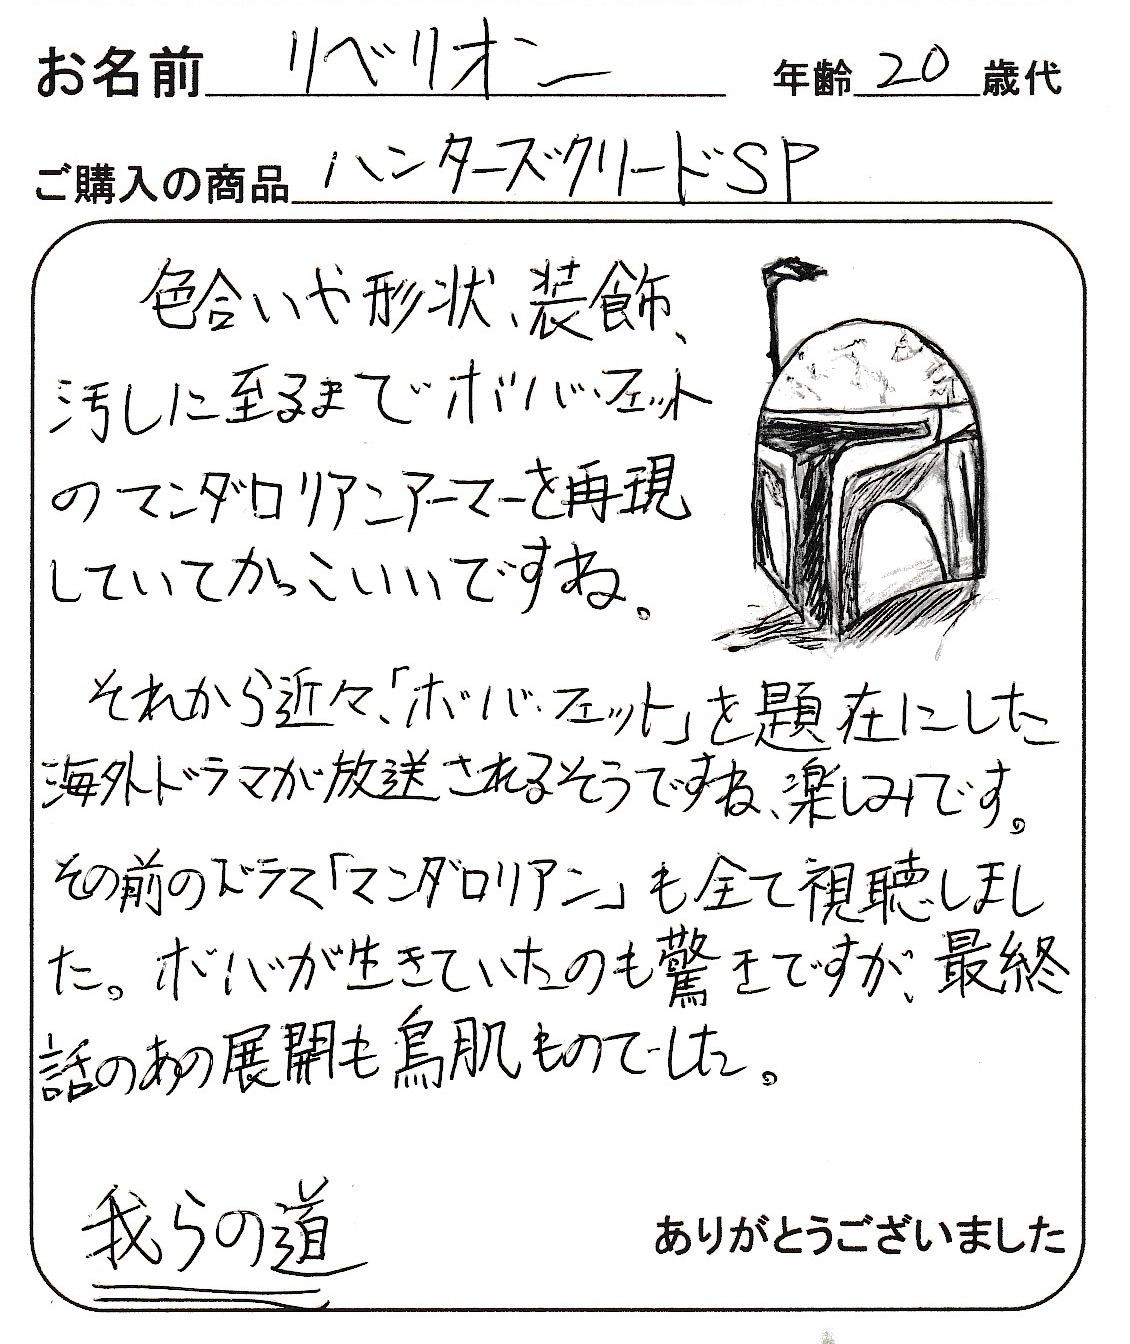 お名前 リベリオン 年齢 20 歳代
ご購入の商品 ハンターズクリードSP
色合いや形状、装飾、
汚しに至るまでボバ・フェット
のマンダロリアンアーマーを再現
していてかっこいいですね。
それから近々、「ボバ・フェット」を題在にした
海外ドラマが放送されるそうですね、楽しみです。
その前のドラマ「マンダロリアン」も全て視聴しまし
た。ボバが生きていたのも驚きですが、最終
話のあの展開も鳥肌ものでした。
我らの道
ありがとうございました